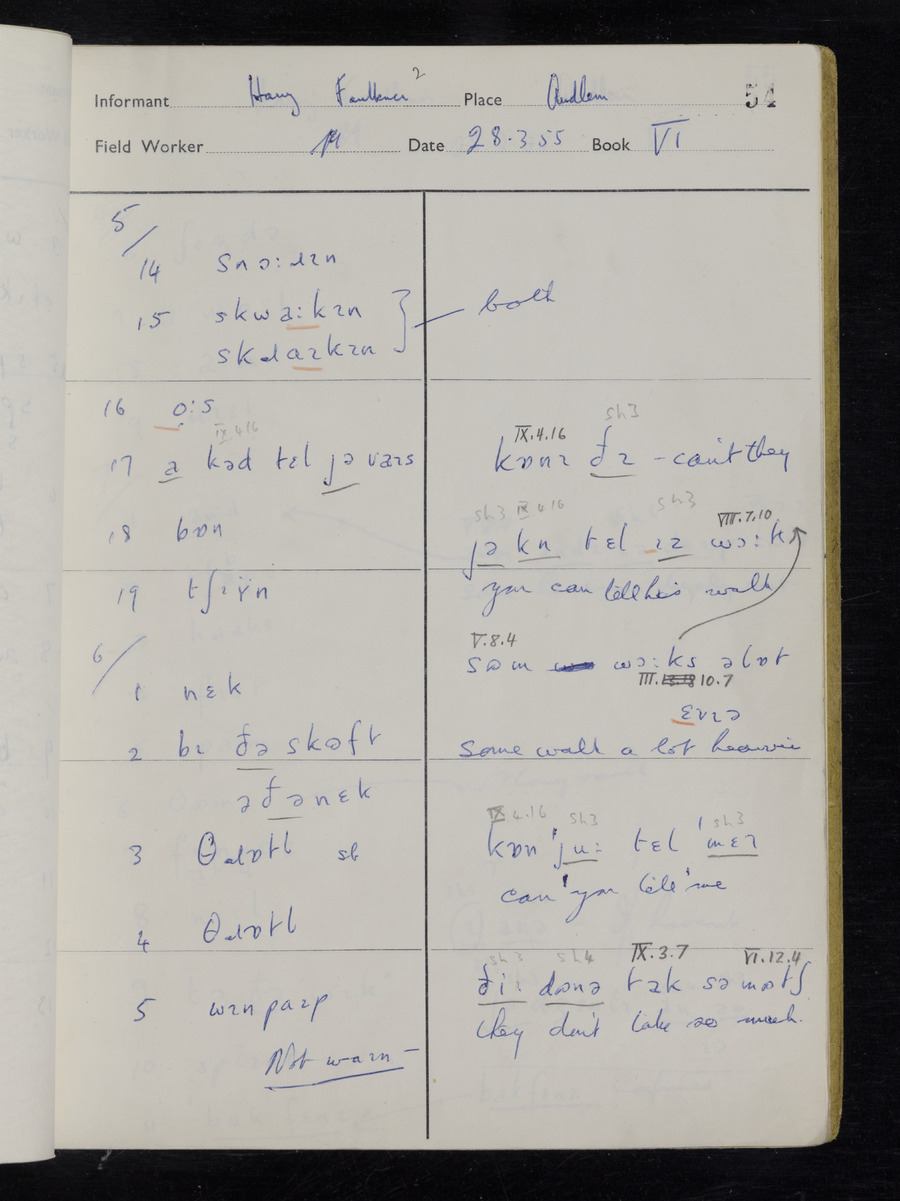 Informant Harry Faulkner ² Place Audlem 54
Field Worker Date 28.3.55 Book VI
5/
14 snɔ:ɹɪn
15 skwa:kɪn } both
skɹaɪkɪn
16 o:s
IX.4.16
17 a kəd tɛl jə vaɪs
18 bɒn
19 tʃɪÿn
6/
1 nɛk
2 bɪ ðə skəft
ə ðə nɛk
3 θɹɒtl sb
4 θɹɒtl
5 wɪnpaɪp
Not waɪn –
IX.4.16 sh3
kɒnɪ ðɪ – can't they
sh3 IX.4.16 sh3 VIII.7.10
jə kn tɛl ɪz wɔ:k
you can tell his walk
V.8.4
səm wɔ:ks əlɒt
III. 10.7
ɛvɪə
Some walk a lot heavier
IX 4.16 sh3 sh3
kɒn 'ju: tɛl 'mɛɪ
can 'you tell 'me
sh3 sh4 IX.3.7 VI.12.4
ði: dənə tɛk sə mətʃ
they don't take so much.